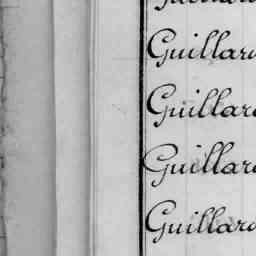 Guillard
Guillard
Guillard
Guillard